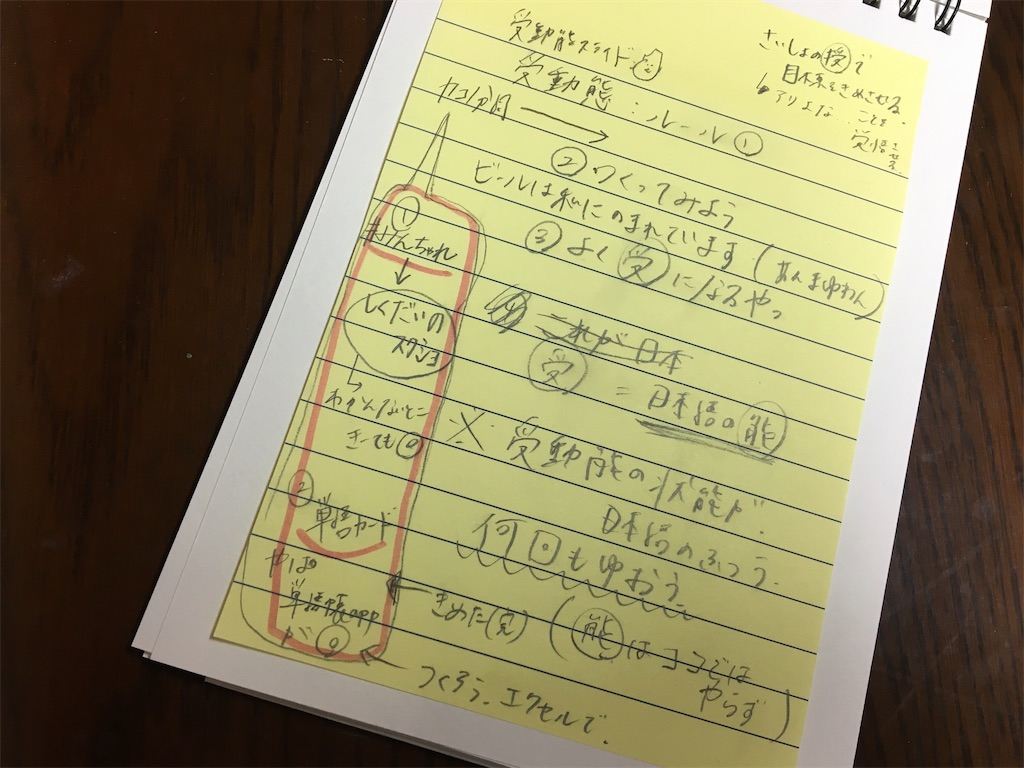 受動能スライド
受動態:ルール①
さいしょの授で
目木系をきめさせる
アリエな...ことを..
受 悟 させる
②つくってみよう
ビールは私にのまれています(あんまゆわん)
③よく受になるやつ
これが日本
受 = 日本語の能
※.受動能の状態が.
日本語のふつう.
何回もゆおう
きめた(完)(能はココではやらず)
つくろう.エクセルで.
①
きげんちゃれ
↓
しくだいの
スクショ
わかんないとこ
きーても◎
②単語カード
やっぱ
単語帳app
が◎